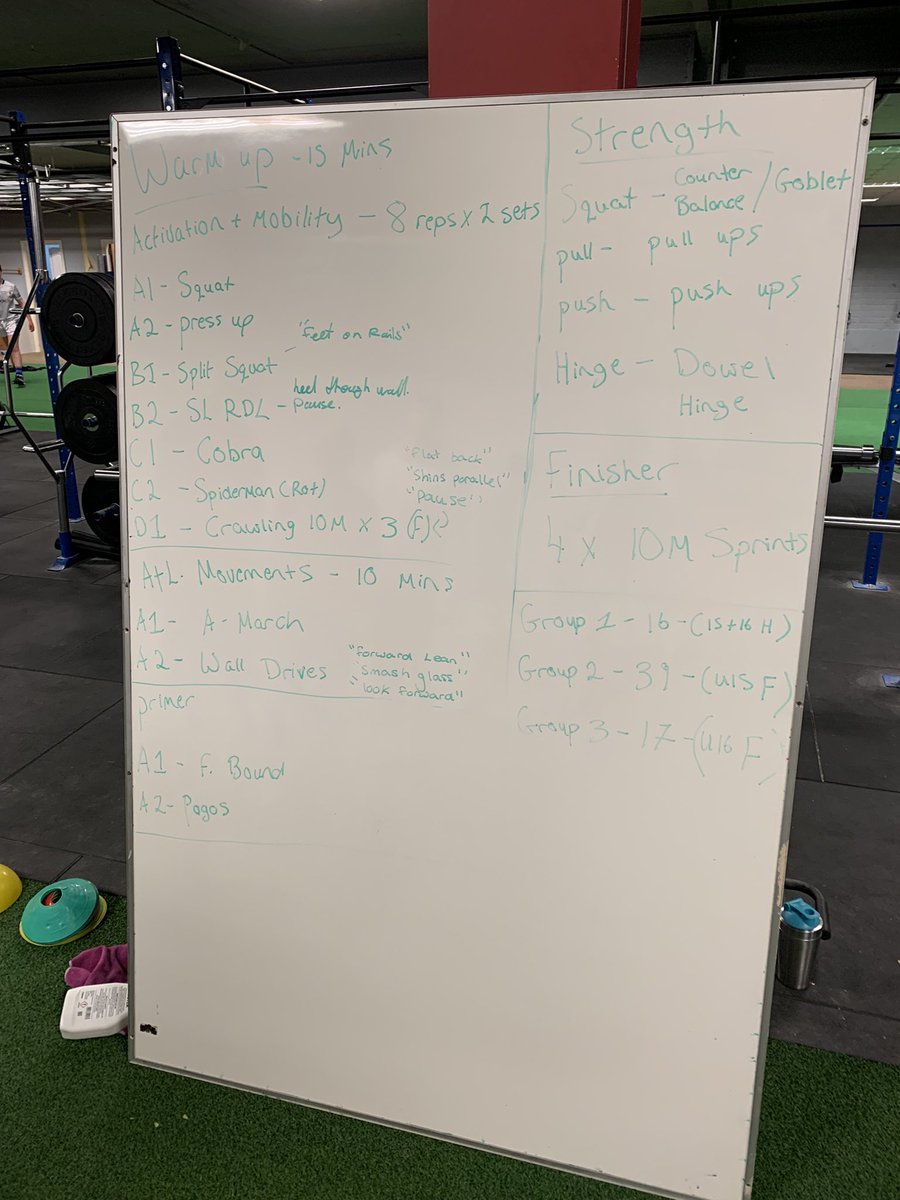 Warm up - 15 Mins
Activation + Mobility - 8 reps x 2 sets
A1 - Squat
A2 - press up
B1 - Split Squat - "feet on Rails"
B2 - SL RDL - heel though wall.
Pause.
C1 - Cobra
C2 - Spiderman (Rot)
D1 - Crawling 10M x 3 (F)
"flat back"
"Shins parallel"
"Pause"
Atl. Movements - 10 Mins
A1 - A-March
A2 - Wall Drives
"forward Lean"
"Smash glass"
"look forward"
primer
A1 - F. Bound
A2 - Pogos
Strength
Squat - Counter Balance / Goblet
pull - pull ups
push - push ups
Hinge - Dowel
Hinge
Finisher
4 x 10M Sprints
Group 1 - 16 - (15+16 H)
Group 2 - 39 - (U15 F)
Group 3 - 17 - (U16 F)